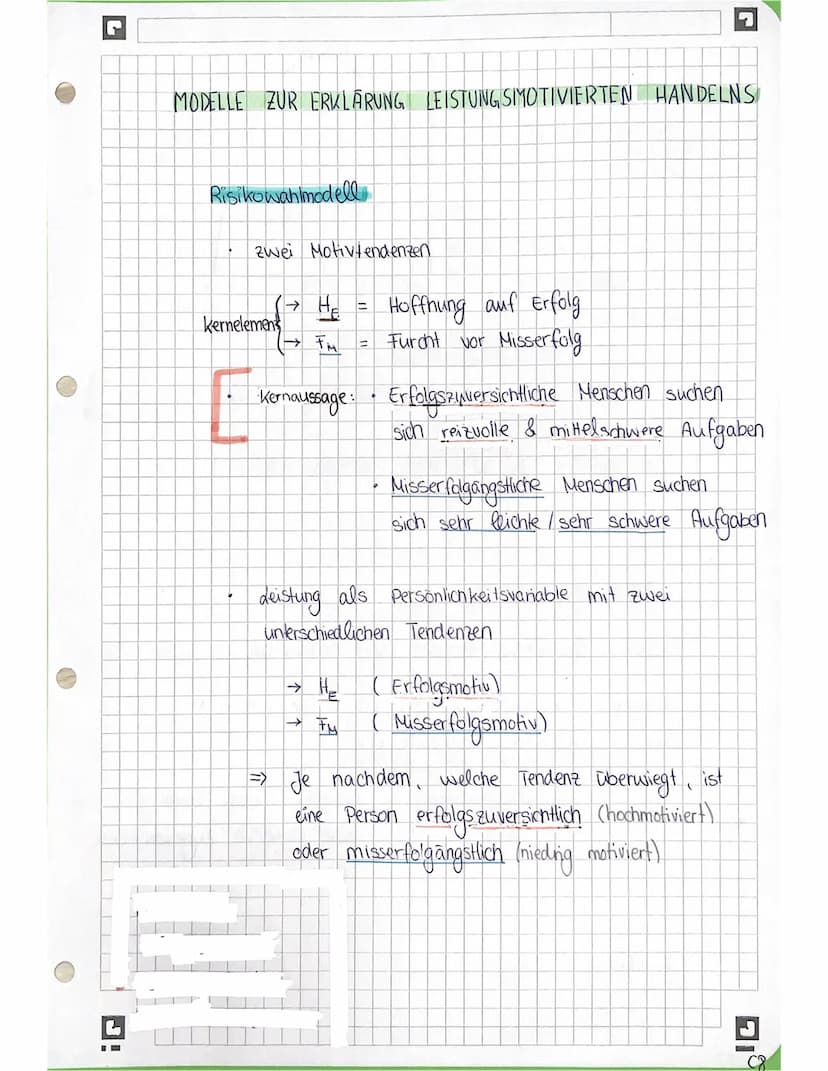 MODELLE ZUR ERKLÄRUNG LEISTUNGSMOTIVIERTEN HANDELNS
Risikowahlmodell
· zwei Motivtendenzen
Kernelement
→ HE = Hoffnung auf Erfolg
→ FM = Furcht vor Misserfolg
· Kernaussage: · Erfolgszuversichtliche Menschen suchen
sich reizvolle & mittelschwere Aufgaben
· Misserfolgängstliche Menschen suchen
sich sehr leichte / sehr schwere Aufgaben
· Leistung als Persönlichkeitsvariable mit zwei
unterschiedlichen Tendenzen
→ HE (Erfolgsmotiv)
→ FM (Misserfolgsmotiv)
=> Je nachdem, welche Tendenz überwiegt, ist
eine Person erfolgszuversichtlich (hochmotiviert)
oder misserfolgängstlich (niedrig motiviert)
C8